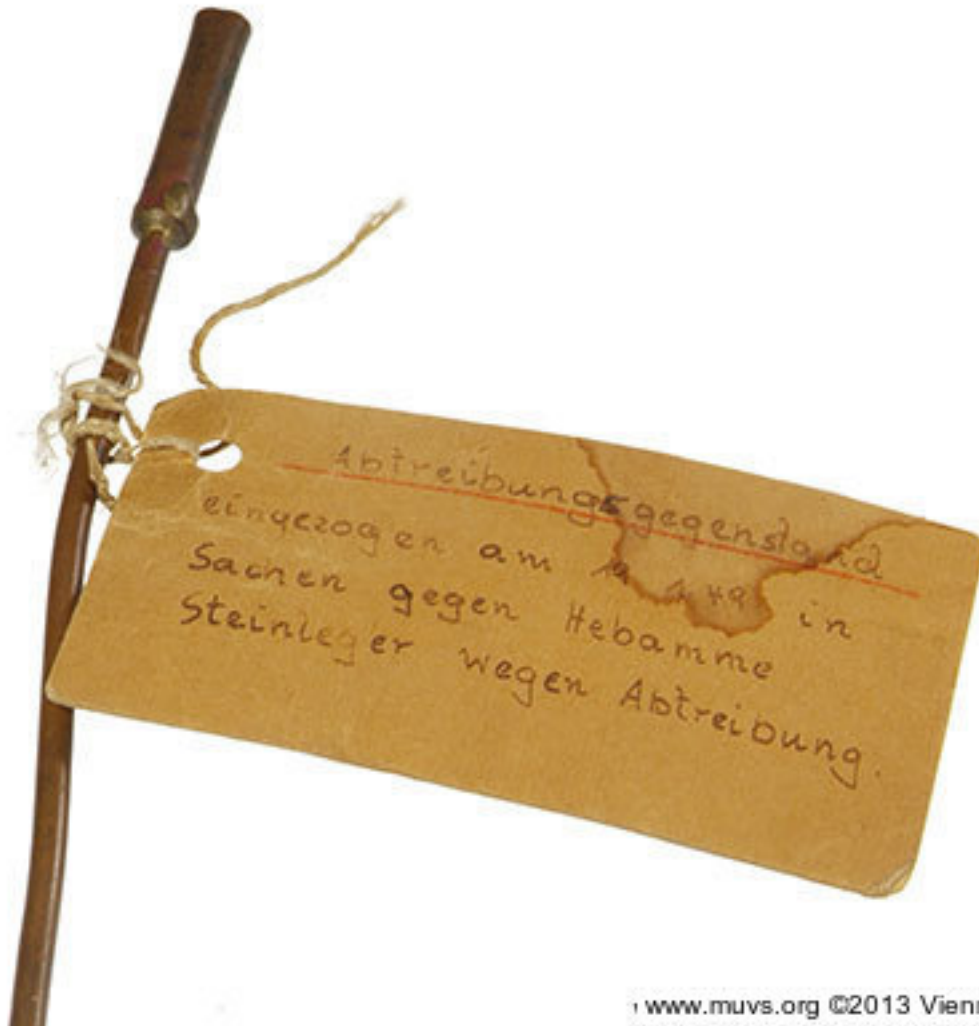 Abtreibungsgegenstand
eingezogen am 49 in
Sachen gegen Hebamme
Steinleger wegen Abtreibung.
www.muvs.org ©2013